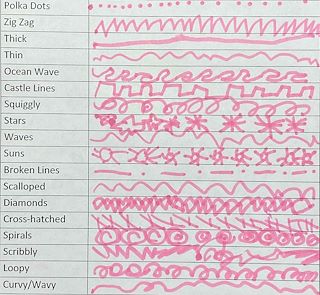 Polka Dots
Zig Zag
Thick
Thin
Ocean Wave
Castle Lines
Squiggly
Stars
Waves
Suns
Broken Lines
Scalloped
Diamonds
Cross-hatched
Spirals
Scribbly
Loopy
Curvy/Wavy